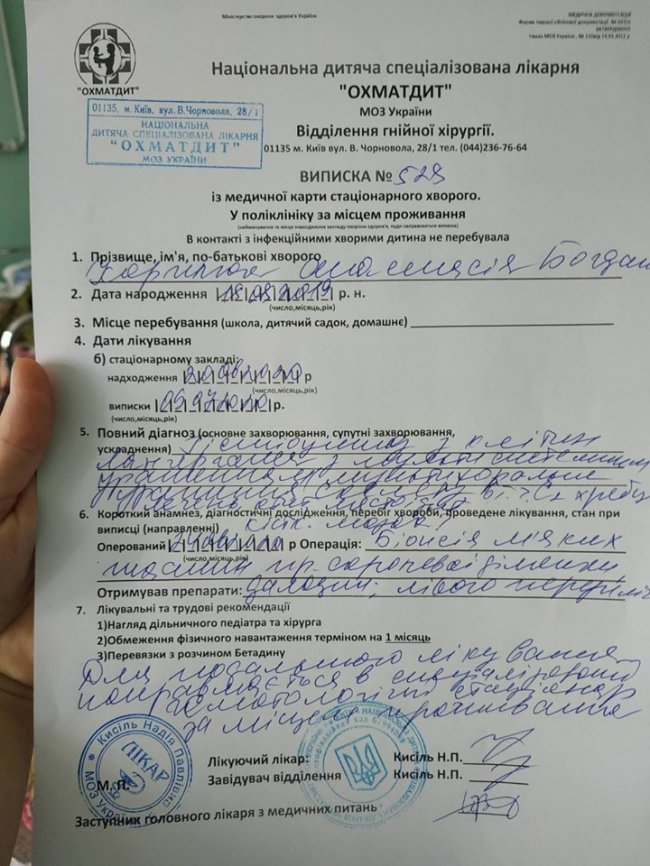 Міністерство охорони здоров'я України
МЕДИЧНА ДОКУМЕНТАЦІЯ
Форма первинної облікової документації № 027/о
ЗАТВЕРДЖЕНО
Наказ МОЗ України
"ОХМАТДИТ"
Національна дитяча спеціалізована лікарня
"ОХМАТДИТ"
МОЗ України
Відділення гнійної хірургії.
01135 м. Київ вул. В. Чорновола, 28/1 тел. (044)236-76-64
01135, м. Київ, вул. В.Чорновола, 28/1
НАЦІОНАЛЬНА
ДИТЯЧА СПЕЦІАЛІЗОВАНА ЛІКАРНЯ
"ОХМАТДИТ"
МОЗ УКРАЇНИ
ВИПИСКА № 529
із медичної карти стаціонарного хворого.
У поліклініку за місцем проживання
(найменування та місце знаходження закладу охорони здоров'я, куди направляється виписка)
В контакті з інфекційними хворими дитина не перебувала
1. Прізвище, ім'я, по-батькові хворого
Анастасія Богдан
2. Дата народження р. н.
(число,місяць,рік)
3. Місце перебування (школа, дитячий садок, домашнє)
4. Дати лікування
б) стаціонарному закладі:
надходження р
(число,місяць,рік)
виписки р.
(число,місяць,рік)
5. Повний діагноз (основне захворювання, супутні захворювання,
ускладнення) Гістіоцитоз з клітин
Лангерганса з мультисистемним
ураженням
хребц
6. Короткий анамнез, діагностичні дослідження, перебіг хвороби, проведене лікування, стан при
виписці (направленні) кіст. мозок
Оперований р Операція: Біопсія м'яких
(число,місяць,рік)
тканин ділянки
Отримував препарати: лівого
7. Лікувальні та трудові рекомендації
1)Нагляд дільничного педіатра та хірурга
2)Обмеження фізичного навантаження терміном на 1 місяць
3)Перевязки з розчином Бетадину
Для подальшого лікування
направляється в
стаціонар
за місцем проживання
Лікуючий лікар: Кисіль Н.П.
Завідувач відділення Кисіль Н.П.
М.П.
Кисіль Надія Павлівна
ЛІКАР
МОЗ України
Заступник головного лікаря з медичних питань